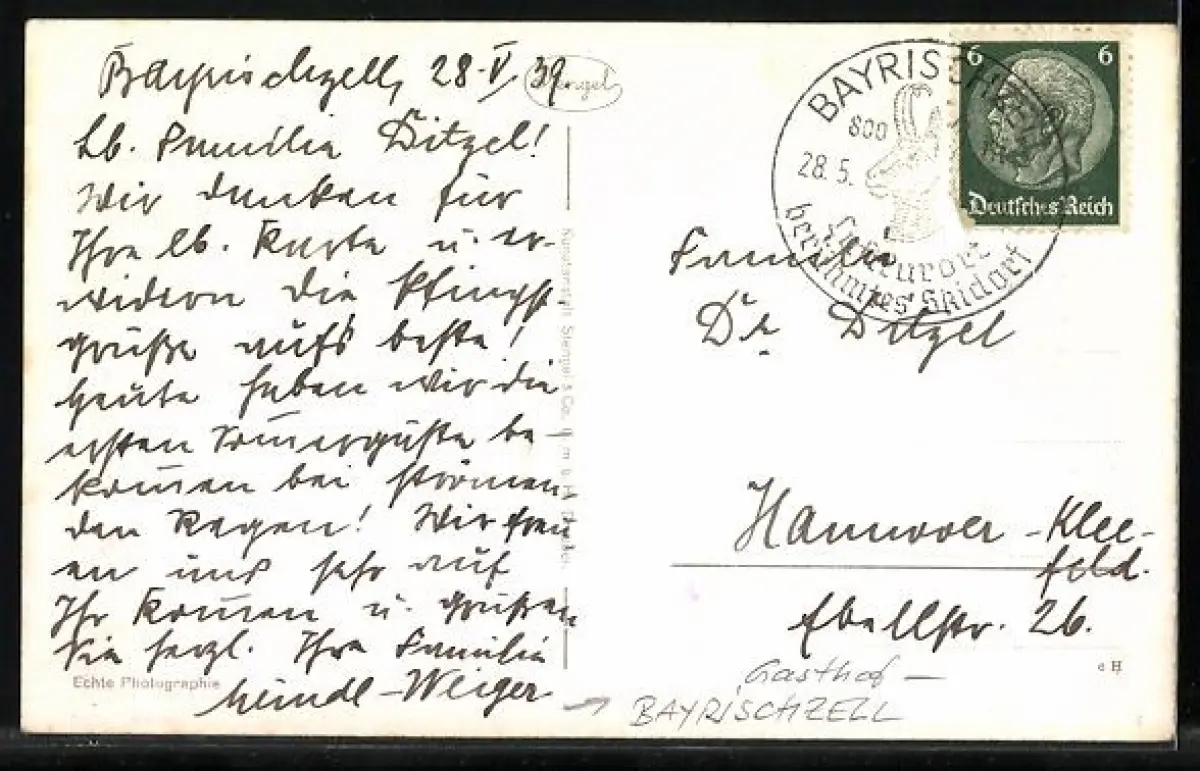 Bayrischzell, 28. V. 39
Lb. Familie Ditzel!
Wir danken für
Ihre lb. Karte u. er-
widern die Pfingst-
grüße aufs beste!
Heute haben wir die
ersten Som̅ergäste be-
kom̅en bei strömen-
den Regen! Wir freu
en uns sehr auf
Ihr Kom̅en u. grüßen
Sie herzl. Ihre Familie
Meindl-Weiger
Echte Photographie
Stengel
Kunstanstalt Stengel & Co., G.m.b.H., Dresden
BAYRISCHZELL
800
28.5.
Luftkurort
berühmtes Skidorf
6 6
Deutsches Reich
Familie
Dr. Ditzel
Hannover-Klee-
feld.
Ebellstr. 26.
e H
Gasthof -
→ BAYRISCHZELL